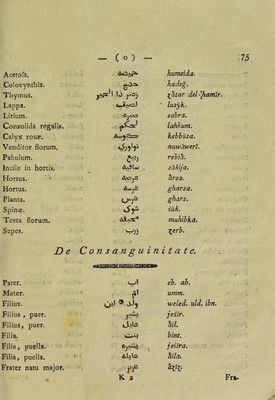 — ( o ) — 75
Acetosa. حميضة humeida.
Colocynthis. حدج hadeǧ.
Thymus. زعتر لذا الحمير
Lappa. لصيق luzyk.
Lirium. صبرة sabra.
Consolida regalis. لحكم lahkum.
Calyx rosæ. كبوسة kebbûza.
Venditor florum. نواوري nuwâwerî.
Pabulum. ربيع rebîà.
Incile in hortis. ساقية sâkija.
Hortus. عرصة àrsa.
Hortus. غرسة gharsa.
Planta. غرس ghars.
Spinæ. شوك sük.
Testa florum. محبقة muhibka.
Sepes. زرب zerb.
De Consanguinitate.
Pater. اب eb. ab.
Mater. ام umm.
Filius. ولد * ابن weled. uld. ibn.
Filius, puer. يشير jeśir.
Filius, puer. عيل
Filia. بنت bint.
Filia, puella. يشيرة jeśira.
Filia, puella. عيلة
Frater natu major. عزيز
K 2 Fra-